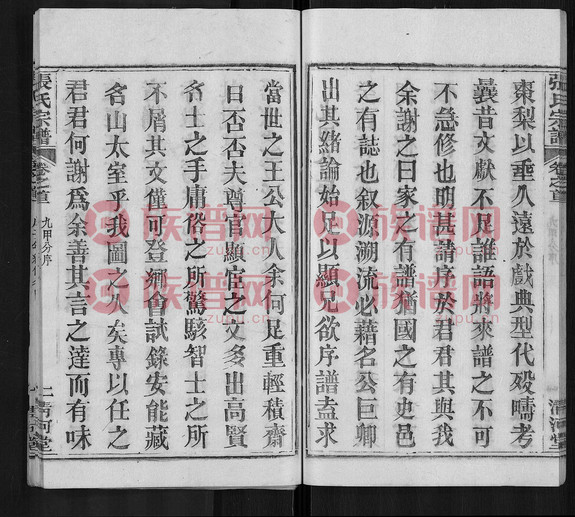 張氏宗譜
卷之首
清河堂
棗梨以垂久遠於戲典型代殁疇考
曩昔文獻不足誰語將來譜之不可
不急修也明甚請序於君君其與我
余謝之曰家之有譜猶國之有史邑
之有誌也叙源溯流必藉名公巨卿
出其緒論始足以顯兄欲序譜盍求
當世之王公大人余何足重輕積齋
曰否否夫尊官顯宦之文多出高賢
名士之手庸俗之所驚駭智士之所
不屑其文僅可登鄉會試錄安能藏
名山太室乎我圖之久矣專以任之
君君何謝爲余善其言之達而有味
張氏宗譜
卷之首
九甲分序
二
清河堂
族谱网
zupu.cn
族谱网
zupu.cn